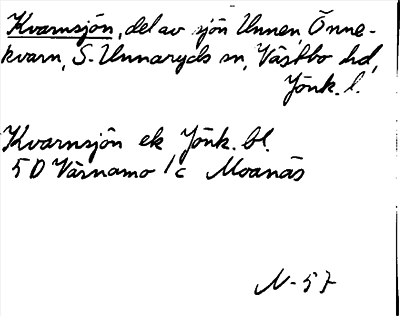 Kvarnsjön, del av sjön Unnen, Önne-
kvarn, S. Unnaryds sn, Västbo hd,
Jönk. l.
Kvarnsjön ek Jönk. bl.
5 D Värnamo 1 c Moanäs
N-57